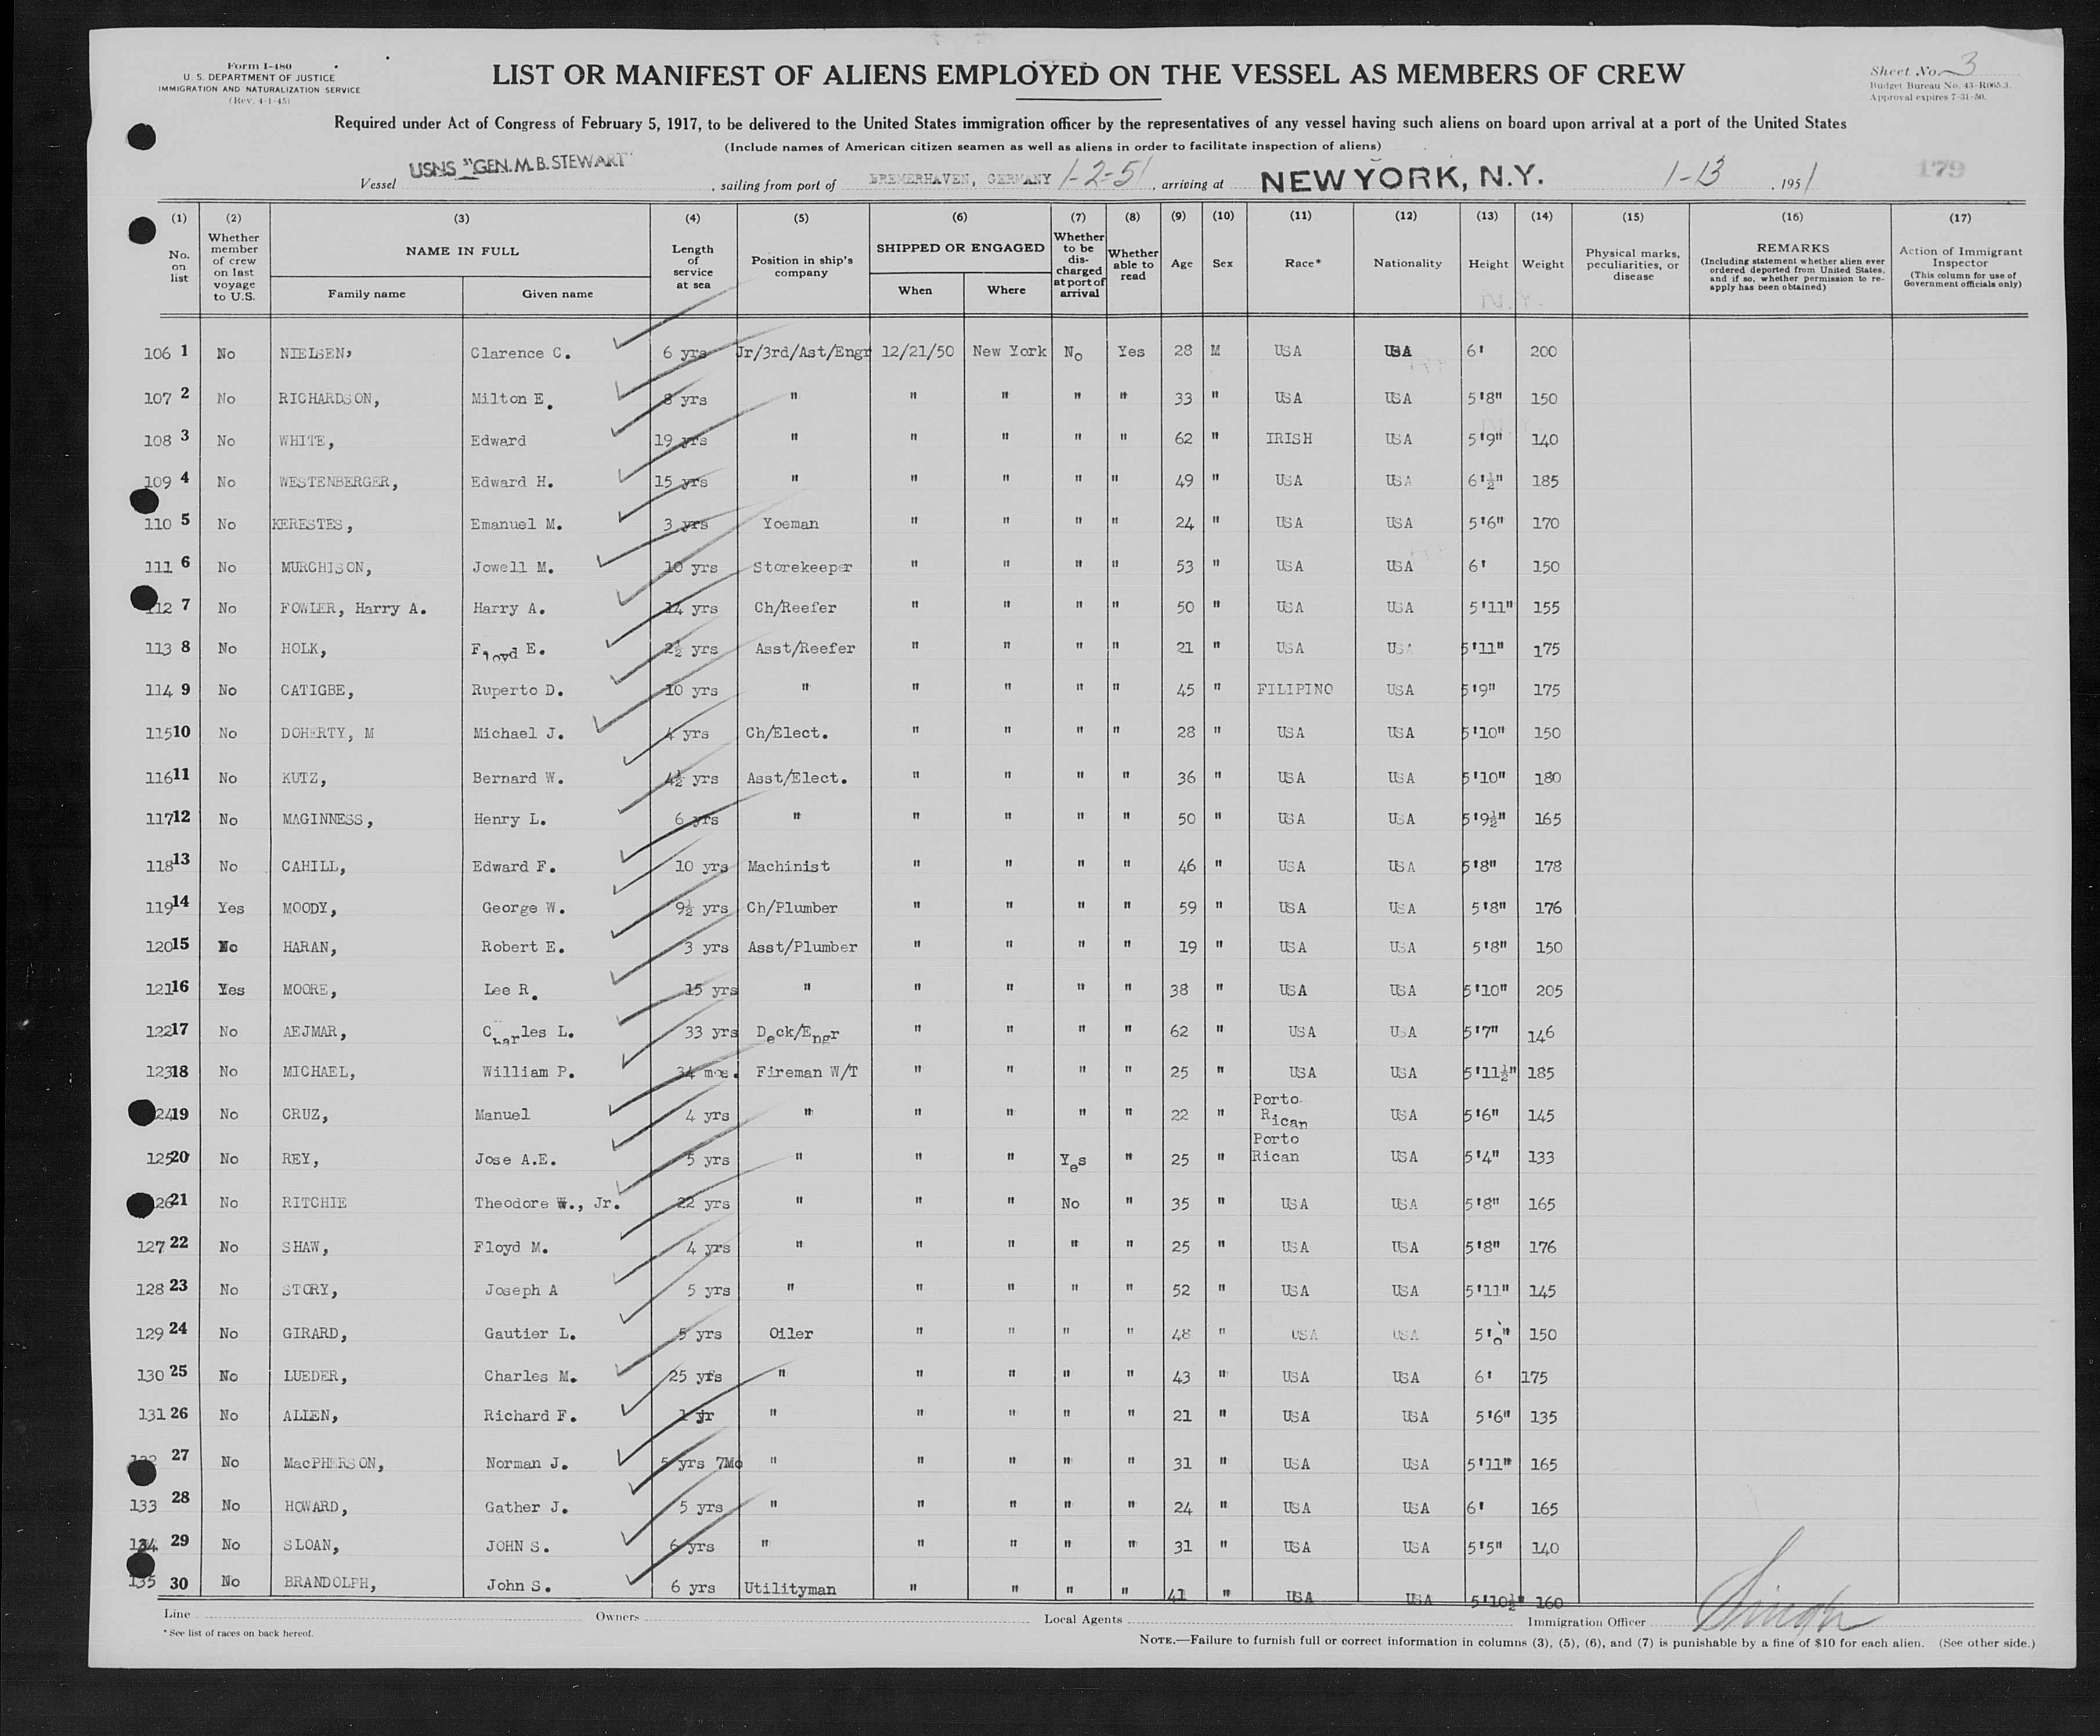 Form I-480
U. S. DEPARTMENT OF JUSTICE
IMMIGRATION AND NATURALIZATION SERVICE
(Rev. 4-1-45)
LIST OR MANIFEST OF ALIENS EMPLOYED ON THE VESSEL AS MEMBERS OF CREW
Sheet No. 3
Budget Bureau No. 43-R065.3.
Approval expires 7-31-50.
Required under Act of Congress of February 5, 1917, to be delivered to the United States immigration officer by the representatives of any vessel having such aliens on board upon arrival at a port of the United States
(Include names of American citizen seamen as well as aliens in order to facilitate inspection of aliens)
Vessel USNS "GEN. M. B. STEWART" , sailing from port of BREMERHAVEN, GERMANY 1-2-51 , arriving at NEW YORK, N.Y. 1-13 , 1951 179
(1) (2) (3) (4) (5) (6) (7) (8) (9) (10) (11) (12) (13) (14) (15) (16) (17)
No. on list
Whether member of crew on last voyage to U.S.
NAME IN FULL
Family name
Given name
Length of service at sea
Position in ship's company
SHIPPED OR ENGAGED
When
Where
Whether to be discharged at port of arrival
Whether able to read
Age
Sex
Race*
Nationality
Height
Weight
Physical marks, peculiarities, or disease
REMARKS
(Including statement whether alien ever ordered deported from United States, and if so, whether permission to reapply has been obtained)
Action of Immigrant Inspector
(This column for use of Government officials only)
N.Y.
106 1 No NIELSEN, Clarence C. 6 yrs Jr/3rd/Ast/Engr 12/21/50 New York No Yes 28 M USA USA 6' 200
107 2 No RICHARDSON, Milton E. 8 yrs " " " " " 33 " USA USA 5'8" 150
108 3 No WHITE, Edward 19 yrs " " " " " 62 " IRISH USA 5'9" 140
109 4 No WESTENBERGER, Edward H. 15 yrs " " " " " 49 " USA USA 6'½" 185
110 5 No KERESTES, Emanuel M. 3 yrs Yoeman " " " " 24 " USA USA 5'6" 170
111 6 No MURCHISON, Jowell M. 10 yrs Storekeeper " " " " 53 " USA USA 6' 150
112 7 No FOWLER, Harry A. Harry A. 14 yrs Ch/Reefer " " " " 50 " USA USA 5'11" 155
113 8 No HOLK, Floyd E. 2½ yrs Asst/Reefer " " " " 21 " USA USA 5'11" 175
114 9 No CATIGBE, Ruperto D. 10 yrs " " " " " 45 " FILIPINO USA 5'9" 175
115 10 No DOHERTY, M Michael J. 4 yrs Ch/Elect. " " " " 28 " USA USA 5'10" 150
116 11 No KUTZ, Bernard W. 4½ yrs Asst/Elect. " " " " 36 " USA USA 5'10" 180
117 12 No MAGINNESS, Henry L. 6 yrs " " " " " 50 " USA USA 5'9½" 165
118 13 No CAHILL, Edward F. 10 yrs Machinist " " " " 46 " USA USA 5'8" 178
119 14 Yes MOODY, George W. 9½ yrs Ch/Plumber " " " " 59 " USA USA 5'8" 176
120 15 No HARAN, Robert E. 3 yrs Asst/Plumber " " " " 19 " USA USA 5'8" 150
121 16 Yes MOORE, Lee R. 15 yrs " " " " " 38 " USA USA 5'10" 205
122 17 No AEJMAR, Charles L. 33 yrs Deck/Engr " " " " 62 " USA USA 5'7" 146
123 18 No MICHAEL, William P. 34 mos. Fireman W/T " " " " 25 " USA USA 5'11½" 185
24 19 No CRUZ, Manuel 4 yrs " " " " " 22 " Porto Rican USA 5'6" 145
125 20 No REY, Jose A.E. 5 yrs " " " Yes " 25 " Porto Rican USA 5'4" 133
26 21 No RITCHIE Theodore W., Jr. 22 yrs " " " No " 35 " USA USA 5'8" 165
127 22 No SHAW, Floyd M. 4 yrs " " " " " 25 " USA USA 5'8" 176
128 23 No STORY, Joseph A 5 yrs " " " " " 52 " USA USA 5'11" 145
129 24 No GIRARD, Gautier L. 5 yrs Oiler " " " " 48 " USA USA 150
130 25 No LUEDER, Charles M. 25 yrs " " " " " 43 " USA USA 6' 175
131 26 No ALLEN, Richard F. 1 yr " " " " " 21 " USA USA 5'6" 135
132 27 No MacPHERSON, Norman J. 5 yrs 7Mo " " " " " 31 " USA USA 5'11" 165
133 28 No HOWARD, Gather J. 5 yrs " " " " " 24 " USA USA 6' 165
134 29 No SLOAN, JOHN S. 6 yrs " " " " " 31 " USA USA 5'5" 140
135 30 No BRANDOLPH, John S. 6 yrs Utilityman " " " " 41 " USA USA 5'10½" 160
Line Owners Local Agents Immigration Officer
*See list of races on back hereof.
NOTE.—Failure to furnish full or correct information in columns (3), (5), (6), and (7) is punishable by a fine of $10 for each alien. (See other side.)